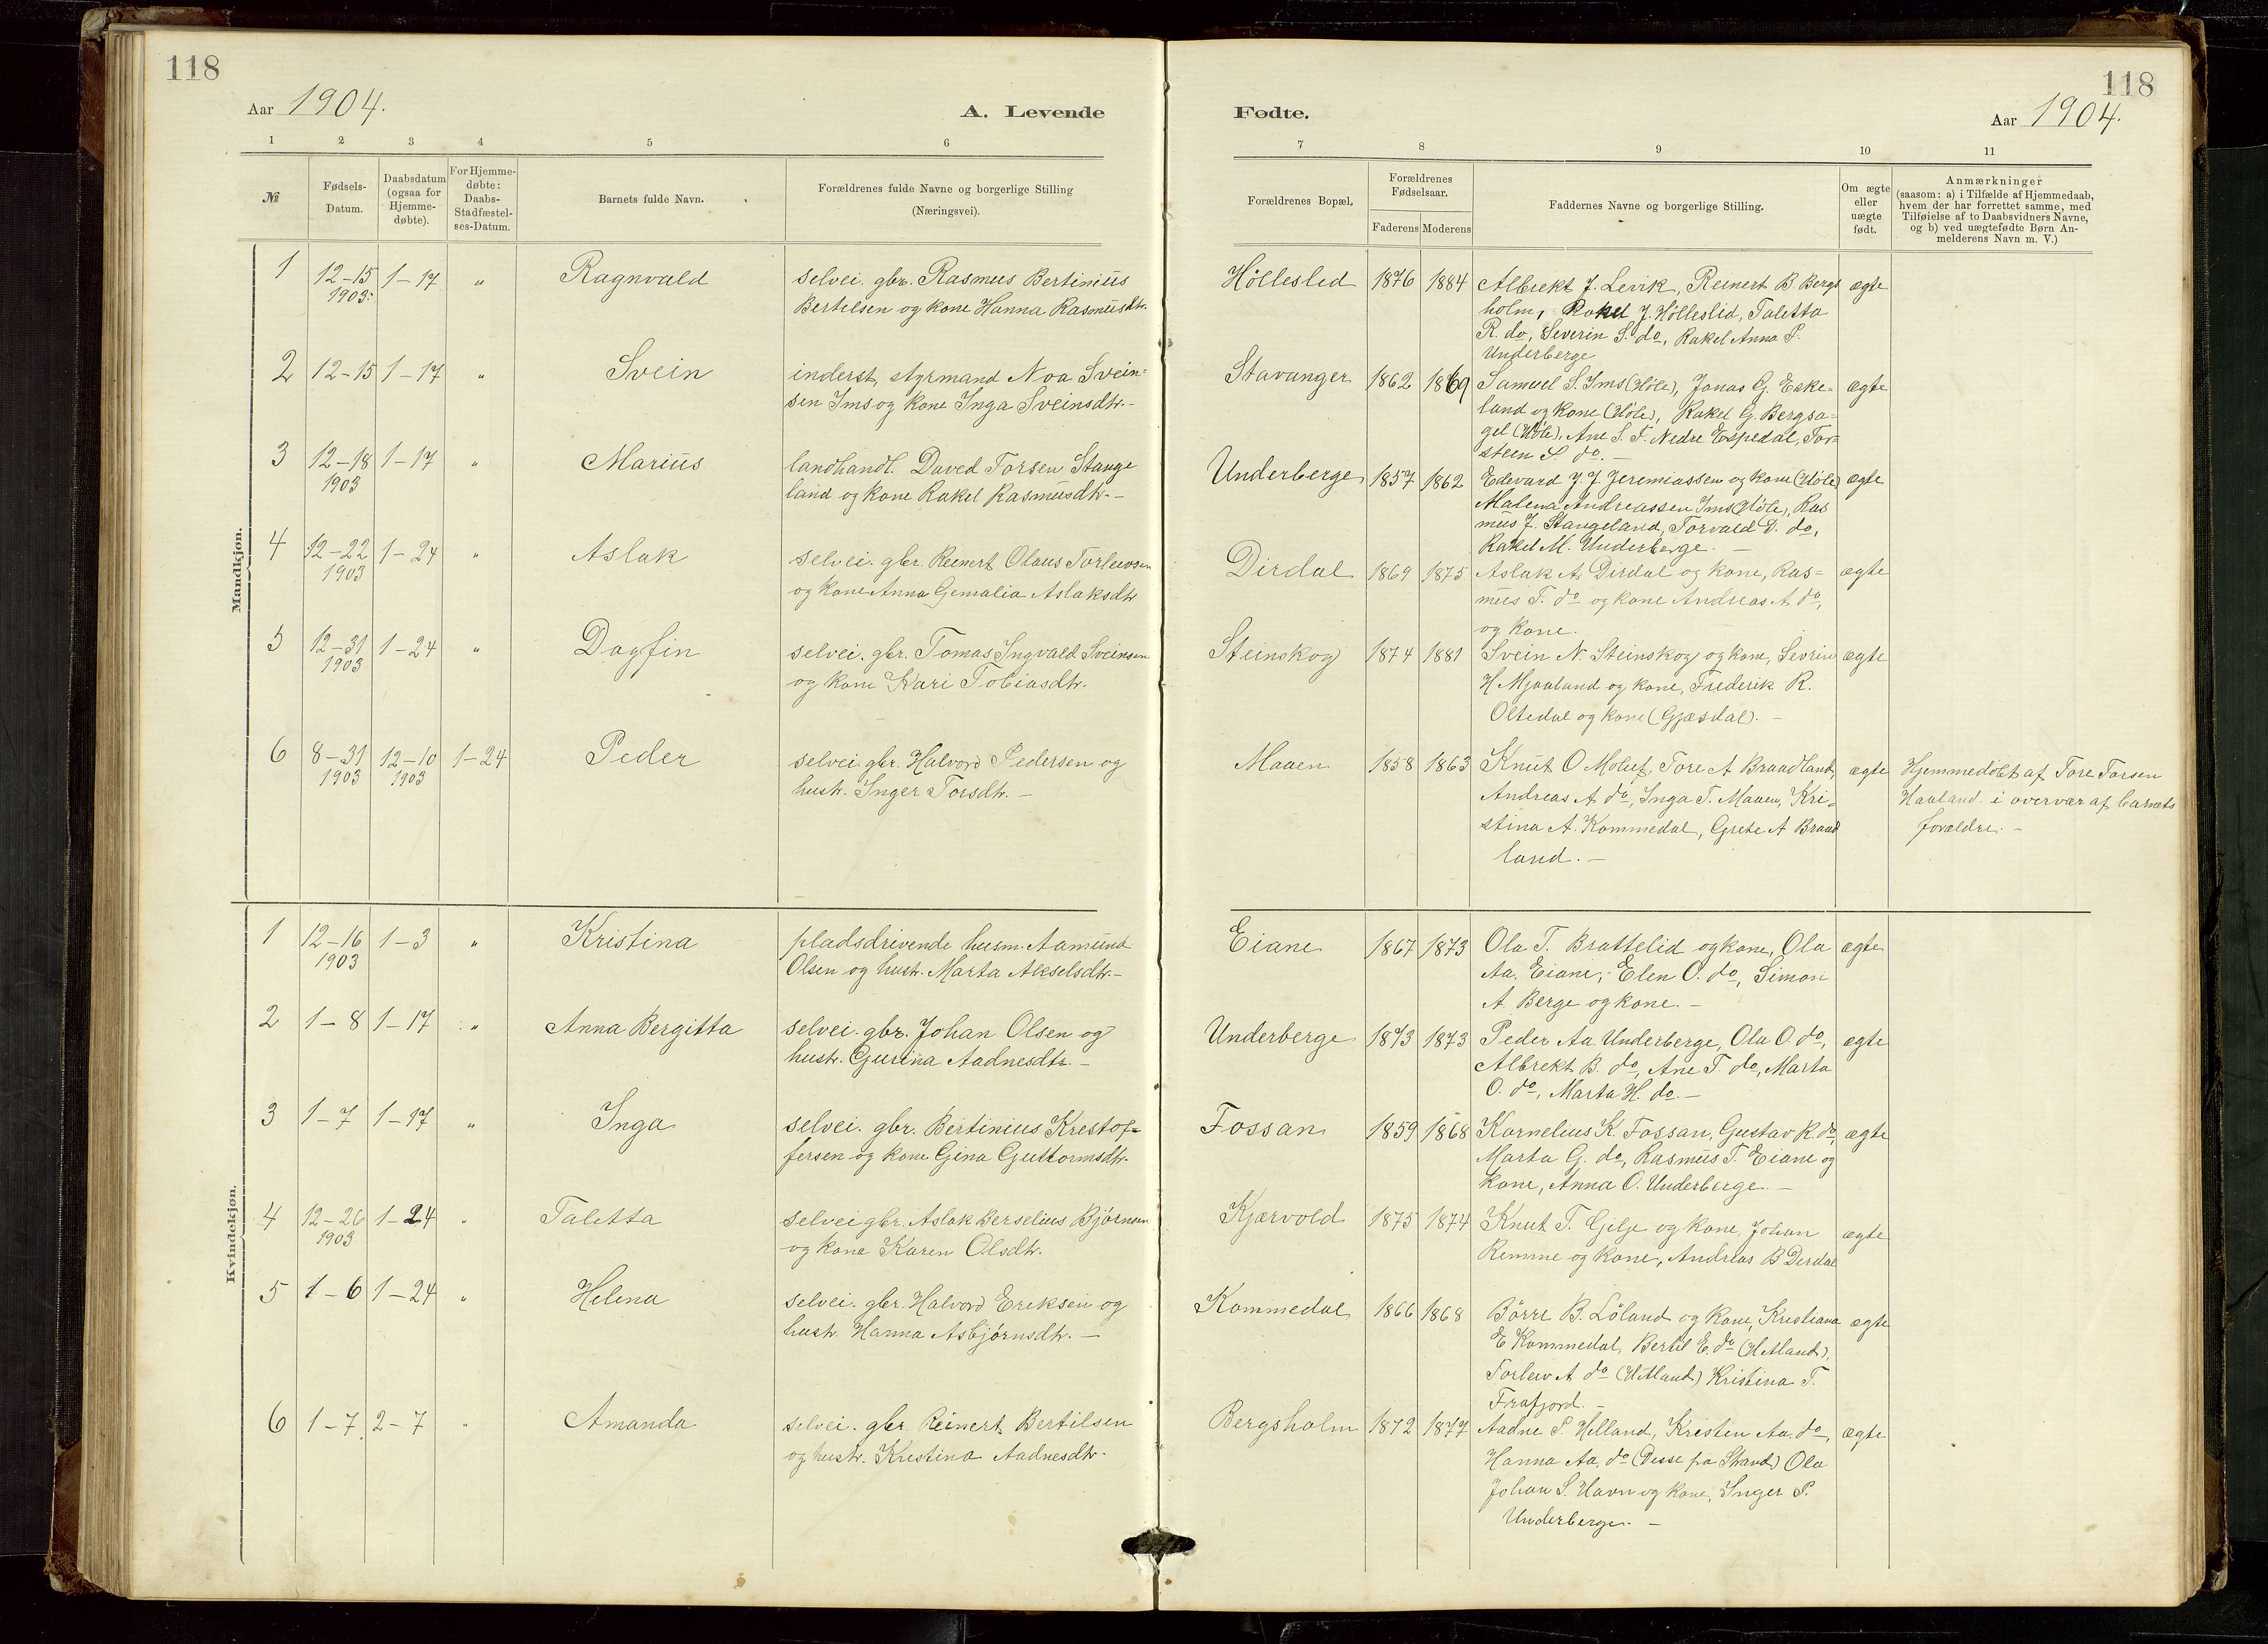 118
Aar 1904.
A. Levende
1 2 3 4 5 6
№
Fødsels-
Datum.
Daabsdatum
(ogsaa for
Hjemme-
døbte).
For Hjemme-
døbte:
Daabs-
Stadfæstel-
ses-Datum.
Barnets fulde Navn.
Forældrenes fulde Navne og borgerlige Stilling
(Næringsvei).
Mandkjøn.
1 12-15 1-17 " Ragnvald selvei. gbr. Rasmus Bertinius
1903. Bertelsen og kone Hanna Rasmusdtr.
2 12-15 1-17 " Svein inderst, styrmand Noa Svein=
sen Ims og kone Inga Sveinsdtr.-
3 12-18 1-17 " Marius landhandl. Daved Torsen Stange
1903 land og kone Rakel Rasmusdtr.-
4 12-22 1-24 " Aslak selvei. gbr. Reinert Olaus Torleivsen
1903 og kone Anna Gemalia Aslaksdtr
5 12-31 1-24 " Dagfin selvei. gbr. Tomas Ingvald Sveinsen
1903 og kone Kari Tobiasdtr.
6 8-31 12-10 1-24 Peder selvei gbr. Halvord Pedersen og
1903 1903 hustr. Inger Torsdtr.-
Kvindekjøn.
1 12-16 1-3 " Kristina pladsdrivende husm. Aamund
1903 Olsen og hustr. Marta Akselsdtr.-
2 1-8 1-17 " Anna Bergitta selvei. gbr. Johan Olsen og
hustr. Gurina Aadnesdtr.-
3 1-7 1-17 " Inga selvei. gbr. Bertinius Krestof=
fersen og kone Gina Guttormsdtr.
4 12-26 1-24 " Taletta selvei gbr. Aslak Berselius Bjørnsen
1903 og kone Karen Olsdtr.
5 1-6 1-24 " Helena selvei. gbr. Halvord Ereksen og
hustr. Hanna Asbjørnsdtr.-
6 1-7 2-7 " Amanda selvei. gbr. Reinert Bertilsen
og hustr. Kristina Aadnesdtr.
118
Fødte.
Aar 1904.
7 8 9 10 11
Forældrenes Bopæl.
Forældrenes
Fødselsaar.
Faderens Moderens
Faddernes Navne og borgerlige Stilling.
Om ægte
eller
uægte
født.
Anmærkninger
(saasom: a) i Tilfælde af Hjemmedaab,
hvem der har forrettet samme, med
Tilføielse af to Daabsvidners Navne,
og b) ved uægtefødte Børn An-
melderens Navn m. V.)
Hölleslid 1876 1884 Albrekt J. Levik, Reinert B. Bergs ægte
holm, Rakel J. Hölleslid, Taletta
R. do, Severin S. do, Rakel Anna P.
Underberge
Stavanger 1862 1869 Samuel S. Ims (Höle), Jonas G. Eske= ægte
land og kone (Höle), Rakel G. Bergsa=
gel (Höle), Ane S. F. Nedre Espedal, Tor=
stein S. do.-
Underberge 1857 1862 Edevard J. J. Jeremiassen og kone (Höle) ægte
Malena Andreassen Ims (Höle), Ras
mus J. Stangeland, Torvald D. do,
Rakel M. Underberge.-
Dirdal 1869 1875 Aslak A. Dirdal og kone, Ras= ægte
mus T. do og kone Andreas A do,
og kone.
Steinskog 1874 1881 Svein N. Steinskog og kone, Sevrin ægte
H. Mjaaland og kone, Frederik R.
Oltedal og kone (Gjæsdal).-
Maaen 1858 1863 Knut O Molut, Tore A Braadland, ægte Hjemmedöbt af Tore Torsen
Andreas A. do, Inga T. Maaen, Kri= Haaland i overvær af barnets
stina A. Kommedal, Grete A Braad forældre.-
land.-
Eiane 1867 1873 Ola T. Brattelid og kone, Ola ægte
Aa. Eiane, Elen O. do, Simon
A. Berge og kone.-
Underberge 1873 1873 Peder Aa. Underberge, Ola O. do, ægte
Albrekt B. do, Ane T. do, Marta
O. do, Marta H. do.-
Fossan 1859 1868 Kornelius K. Fossan, Gustav K. do, ægte
Marta G. do, Rasmus T. Eiane og
kone, Anna O. Underberge.-
Kjærvold 1875 1874 Knut T. Gilje og kone, Johan ægte
Remme og kone, Andreas B Derdal
Kommedal 1866 1868 Börre B. Löland og kone, Kristiana ægte
E Kommedal, Bertil E. do (Hetland),
Torleiv A do (Hetland) Kristina T.
Frafjord.-
Bergsholm 1872 1877 Aadne P. Helland, Kristen Aa. do, ægte
Hanna Aa. do (Disse fra Strand) Ola
Johan S. Havn og kone, Inger P.
Underberge.-